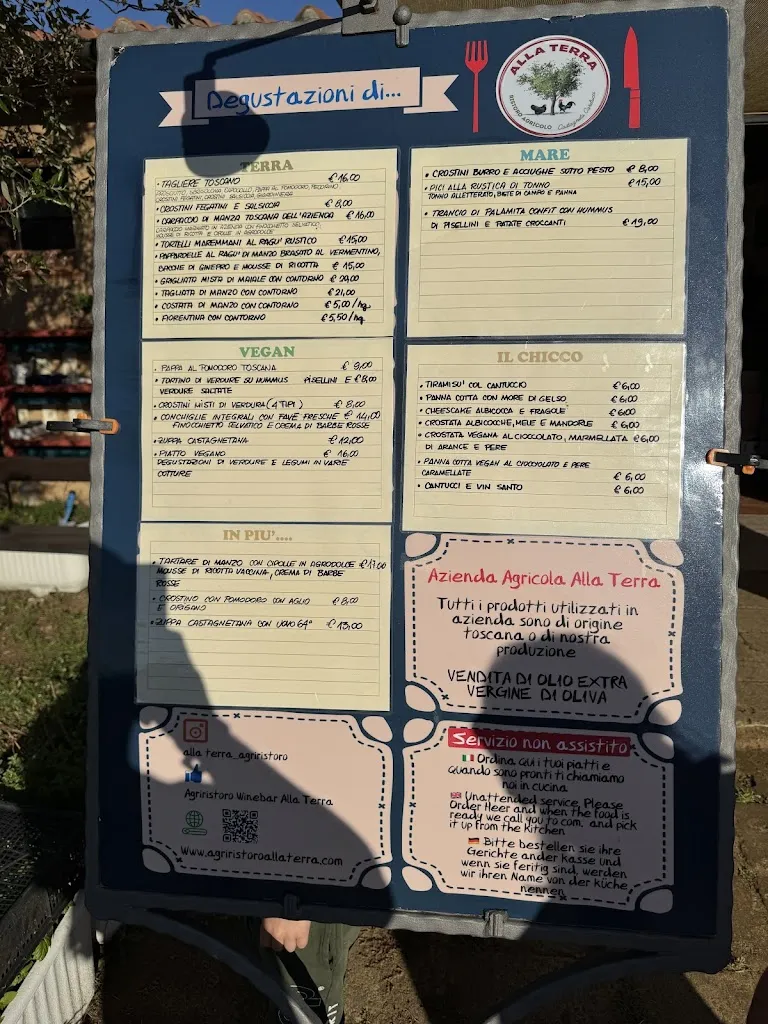 Degustazioni di...
ALLA TERRA
RISTORO AGRICOLO
Castagneto Carducci
TERRA
• TAGLIERE TOSCANO € 16,00
• CROSTINI FEGATINI E SALSICCIA € 8,00
• CARPACCIO DI MANZO TOSCANA DELL'AZIENDA € 16,00
CARPACCIO MARINATO IN AZIENDA CON FINOCCHIETTO SELVATICO,
MOUSSE DI RICOTTA E CIPOLLE IN AGRODOLCE
• TORTELLI MAREMMANI AL RAGU' RUSTICO € 15,00
• PAPPARDELLE AL RAGU' DI MANZO BRASATO AL VERMENTINO,
BACCHE DI GINEPRO E MOUSSE DI RICOTTA € 15,00
• GRIGLIATA MISTA DI MAIALE CON CONTORNO €
• TAGLIATA DI MANZO CON CONTORNO € 21,00
• COSTATA DI MANZO CON CONTORNO € 5,00/hg
• FIORENTINA CON CONTORNO € 5,50/hg
MARE
• CROSTINI BURRO E ACCIUGHE SOTTO PESTO € 8,00
• PICI ALLA RUSTICA DI TONNO € 15,00
TONNO ALLETTERATO, BIETE DI CAMPO E PANNA
• TRANCIO DI PALAMITA CONFIT CON HUMMUS
DI PISELLINI E PATATE CROCCANTI € 19,00
VEGAN
• PAPPA AL POMODORO TOSCANA € 9,00
• TORTINO DI VERDURE SU HUMMUS PISELLINI E € 8,00
VERDURE SALTATE
• CROSTINI MISTI DI VERDURA (4 TIPI) € 8,00
• CONCHIGLIE INTEGRALI CON FAVE FRESCHE € 14,00
FINOCCHIETTO SELVATICO E CREMA DI BARBE ROSSE
• ZUPPA CASTAGNETANA € 12,00
• PIATTO VEGANO € 16,00
DEGUSTAZIONI DI VERDURE E LEGUMI IN VARIE
COTTURE
IL CHICCO
• TIRAMISU' COL CANTUCCIO € 6,00
• PANNA COTTA CON MORE DI GELSO € 6,00
• CHEESCAKE ALBICOCCA E FRAGOLE € 6,00
• CROSTATA ALBICOCCHE, MELE E MANDORLE € 6,00
• CROSTATA VEGANA AL CIOCCOLATO, MARMELLATA € 6,00
DI ARANCE E PERE
• PANNA COTTA VEGAN AL CIOCCOLATO E PERE
CARAMELLATE € 6,00
• CANTUCCI E VIN SANTO € 6,00
IN PIU'....
• TARTARE DI MANZO CON CIPOLLE IN AGRODOLCE € 17,00
MOUSSE DI RICOTTA VACCINA, CREMA DI BARBE
ROSSE
• CROSTINO CON POMODORO CON AGLIO € 8,00
E ORIGANO
• ZUPPA CASTAGNETANA CON UOVO 64° € 13,00
Azienda Agricola Alla Terra
Tutti i prodotti utilizzati in
azienda sono di origine
toscana o di nostra
produzione
VENDITA DI OLIO EXTRA
VERGINE DI OLIVA
alla terra_agriristoro
Agriristoro Winebar Alla Terra
www.agriristoroallaterra.com
Servizio non assistito
Ordina qui i tuoi piatti e
quando sono pronti ti chiamiamo
noi in cucina
Unattended service. Please
Order Heer and when the food is
ready we call you to com, and pick
it up from the kitchen
Bitte bestellen sie ihre
Gerichte ander kasse und
wenn sie feritig sind, werden
wir ihren Name von der küche
nennen